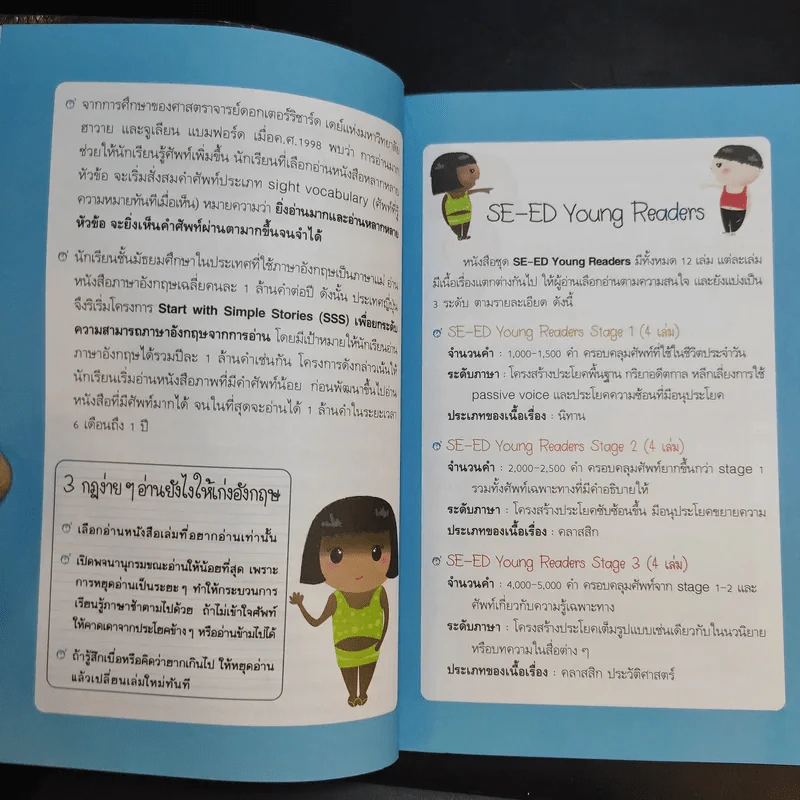 จากการศึกษาของศาสตราจารย์ดอกเตอร์ริชาร์ด เดย์แห่งมหาวิทยาลัย
ฮาวาย และจูเลียน แบมฟอร์ด เมื่อค.ศ.1998 พบว่า การอ่านมาก
ช่วยให้นักเรียนรู้ศัพท์เพิ่มขึ้น นักเรียนที่เลือกอ่านหนังสือหลากหลาย
หัวข้อ จะเริ่มสั่งสมคำศัพท์ประเภท sight vocabulary (ศัพท์ที่รู้
ความหมายทันทีเมื่อเห็น) หมายความว่า ยิ่งอ่านมากและอ่านหลากหลาย
หัวข้อ จะยิ่งเห็นคำศัพท์ผ่านตามากขึ้นจนจำได้
นักเรียนชั้นมัธยมศึกษาในประเทศที่ใช้ภาษาอังกฤษเป็นภาษาแม่ อ่าน
หนังสือภาษาอังกฤษเฉลี่ยคนละ 1 ล้านคำต่อปี ดังนั้น ประเทศญี่ปุ่น
จึงริเริ่มโครงการ Start with Simple Stories (SSS) เพื่อยกระดับ
ความสามารถภาษาอังกฤษจากการอ่าน โดยมีเป้าหมายให้นักเรียนอ่าน
ภาษาอังกฤษได้รวมปีละ 1 ล้านคำเช่นกัน โครงการดังกล่าวเน้นให้
นักเรียนเริ่มอ่านหนังสือภาพที่มีคำศัพท์น้อย ก่อนพัฒนาขึ้นไปอ่าน
หนังสือที่มีศัพท์มากได้ จนในที่สุดจะอ่านได้ 1 ล้านคำในระยะเวลา
6 เดือนถึง 1 ปี
3 กฎง่าย ๆ อ่านยังไงให้เก่งอังกฤษ
เลือกอ่านหนังสือเล่มที่อยากอ่านเท่านั้น
เปิดพจนานุกรมขณะอ่านให้น้อยที่สุด เพราะ
การหยุดอ่านเป็นระยะ ๆ ทำให้กระบวนการ
เรียนรู้ภาษาช้าตามไปด้วย ถ้าไม่เข้าใจศัพท์
ให้คาดเดาจากประโยคข้าง ๆ หรืออ่านข้ามไปได้
ถ้ารู้สึกเบื่อหรือคิดว่ายากเกินไป ให้หยุดอ่าน
แล้วเปลี่ยนเล่มใหม่ทันที
SE-ED Young Readers
หนังสือชุด SE-ED Young Readers มีทั้งหมด 12 เล่ม แต่ละเล่ม
มีเนื้อเรื่องแตกต่างกันไป ให้ผู้อ่านเลือกอ่านตามความสนใจ และยังแบ่งเป็น
3 ระดับ ตามรายละเอียด ดังนี้
SE-ED Young Readers Stage 1 (4 เล่ม)
จำนวนคำ : 1,000-1,500 คำ ครอบคลุมศัพท์ที่ใช้ในชีวิตประจำวัน
ระดับภาษา : โครงสร้างประโยคพื้นฐาน กริยาอดีตกาล หลีกเลี่ยงการใช้
passive voice และประโยคความซ้อนที่มีอนุประโยค
ประเภทของเนื้อเรื่อง : นิทาน
SE-ED Young Readers Stage 2 (4 เล่ม)
จำนวนคำ : 2,000-2,500 คำ ครอบคลุมศัพท์ยากขึ้นกว่า stage 1
รวมทั้งศัพท์เฉพาะทางที่มีคำอธิบายให้
ระดับภาษา : โครงสร้างประโยคซับซ้อนขึ้น มีอนุประโยคขยายความ
ประเภทของเนื้อเรื่อง : คลาสสิก
SE-ED Young Readers Stage 3 (4 เล่ม)
จำนวนคำ : 4,000-5,000 คำ ครอบคลุมศัพท์จาก stage 1-2 และ
ศัพท์เกี่ยวกับความรู้เฉพาะทาง
ระดับภาษา : โครงสร้างประโยคเต็มรูปแบบเช่นเดียวกับในนวนิยาย
หรือบทความในสื่อต่าง ๆ
ประเภทของเนื้อเรื่อง : คลาสสิก ประวัติศาสตร์